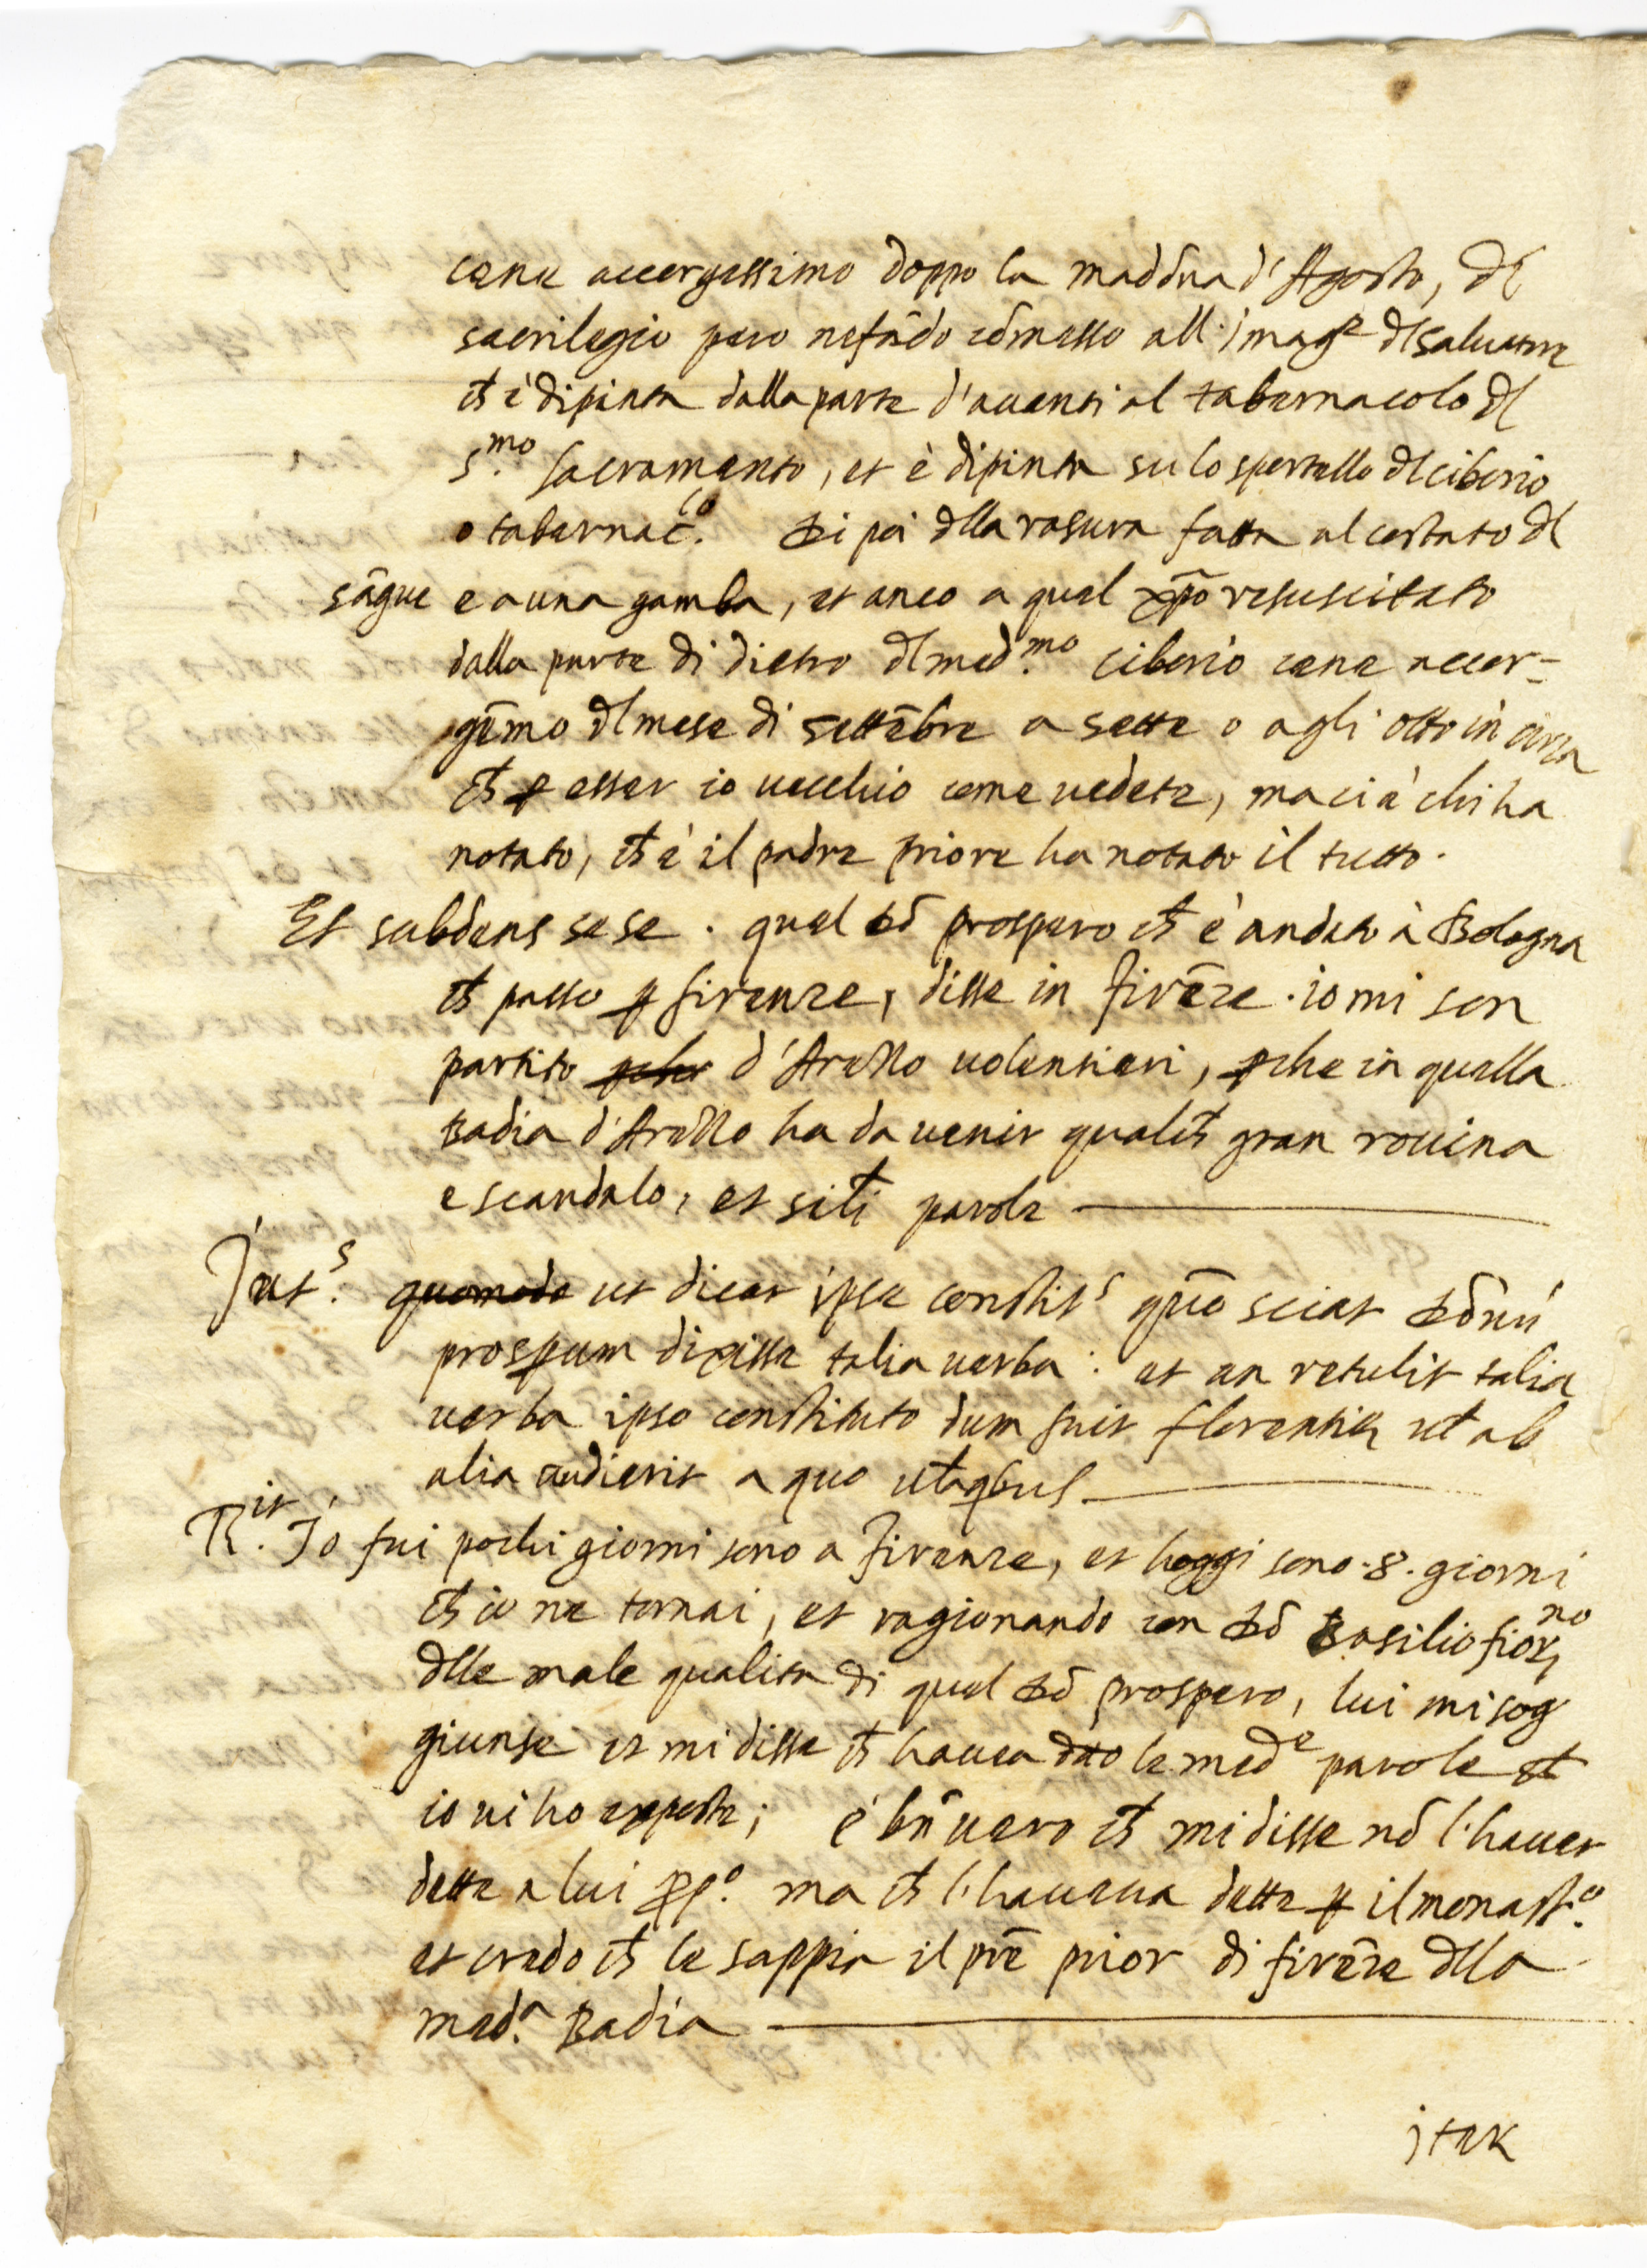 cene accorgessimo doppo la madōna d'Agosto, dl
sacrilegio pero nefādo cōmesso all'imagē dl saluatore
ch̄ è dipinta dalla parte d'auanti al tabernacolo dl
S.mo Sacramento, et è dipinta su lo sportello dl ciborio
o tabernac.co Di poi dlla rasura fatta al costato dl
sāgue e a una gamba, et anco a quel xp̄o resuscitato
dalla parte di dietro dl med.mo ciborio cene accor-
gēmo dl mese di settēbre a sette o agli otto in circa
ch̄ p esser io uecchio come uedete, ma ci è chi ha
notato, ch̄ è il padre priore ha notato il tutto.
Et subdens se se. quel Dō prospero ch̄ è andato à Bologna
ch̄ passo p firenze, disse in firēze. io mi son
partito d'Arezzo uolentieri, pche in quella
Badia d'Arezzo ha da uenir qualch̄ gran rouina
e scandalo, et sili parole
Int.s quomodo ut dicat ipse constit.s quō sciat Dōnū
prosperum dixisse talia uerba: et an retulit talia
uerba ipso constituto dum fuit florentiæ uel ab
alia audierit a quo uel a qbus
R.it Io fui pochi giorni sono a firenze, et hoggi sono .8. giorni
ch̄ io ne tornai, et ragionando con Dō Basilio fior.no
dlle male qualita di quel Dō prospero, lui mi sog
giunse et mi disse ch̄ hauea dtto le med.e parole ch̄
io ui ho exposte; è bn̄ uero ch̄ mi disse nō l'hauer
dette a lui pp.o ma ch̄ l'haueua dette p il monast.o
et credo ch̄ le sappia il prē prior di firēze dlla
med.a Badia
itek